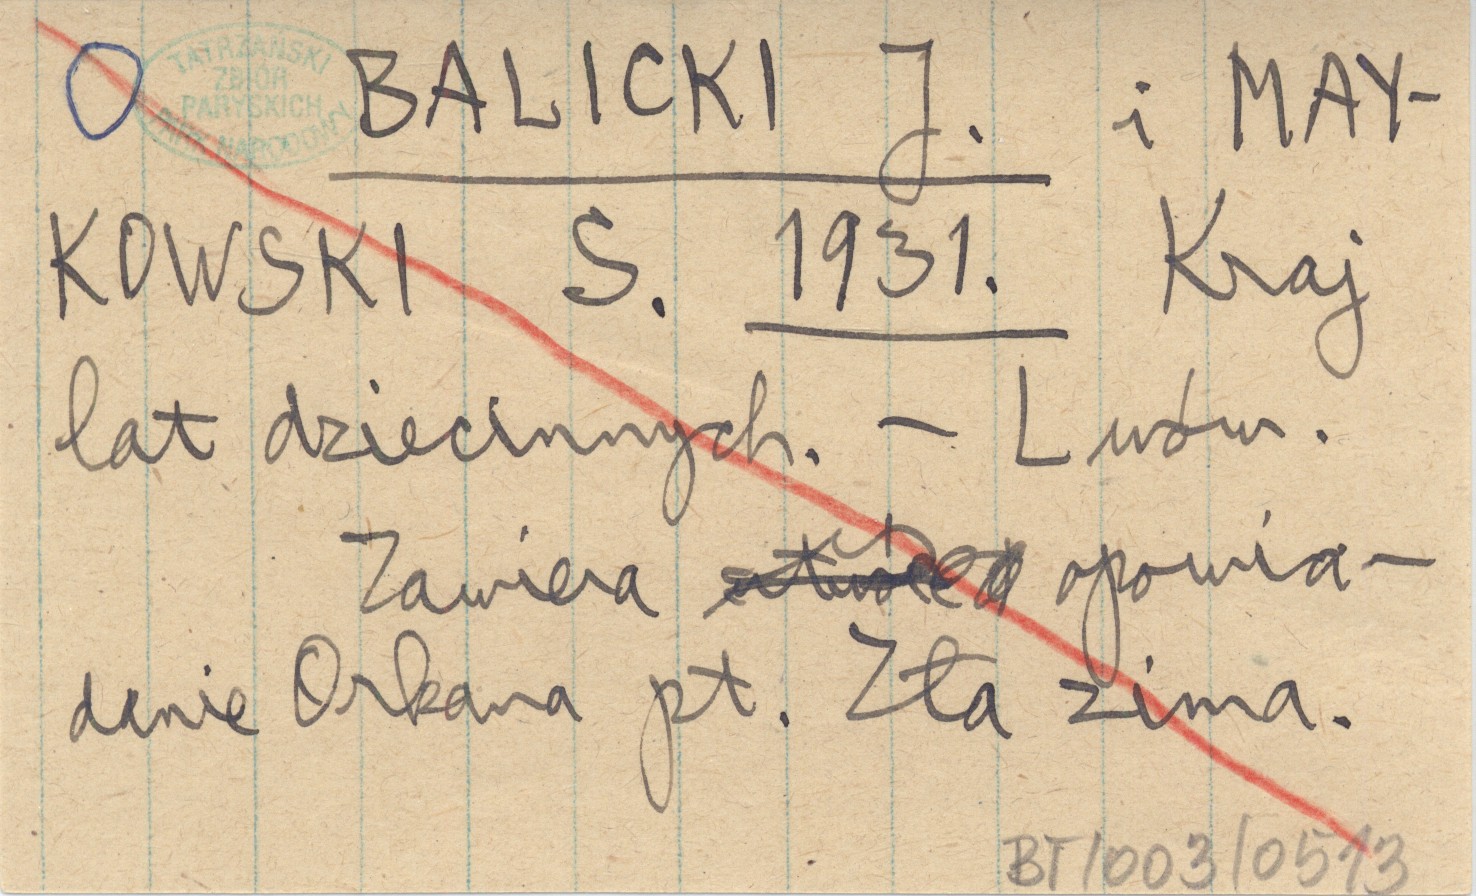 O
TATRZAŃSKI
ZBIÓR
PARYSKICH
PARK NARODOWY
BALICKI J. i MAY-
KOWSKI S. 1931. Kraj
lat dziecinnych. – Lwów.
Zawiera opowia-
danie Orkana pt. Zła zima.
BT/003/0513